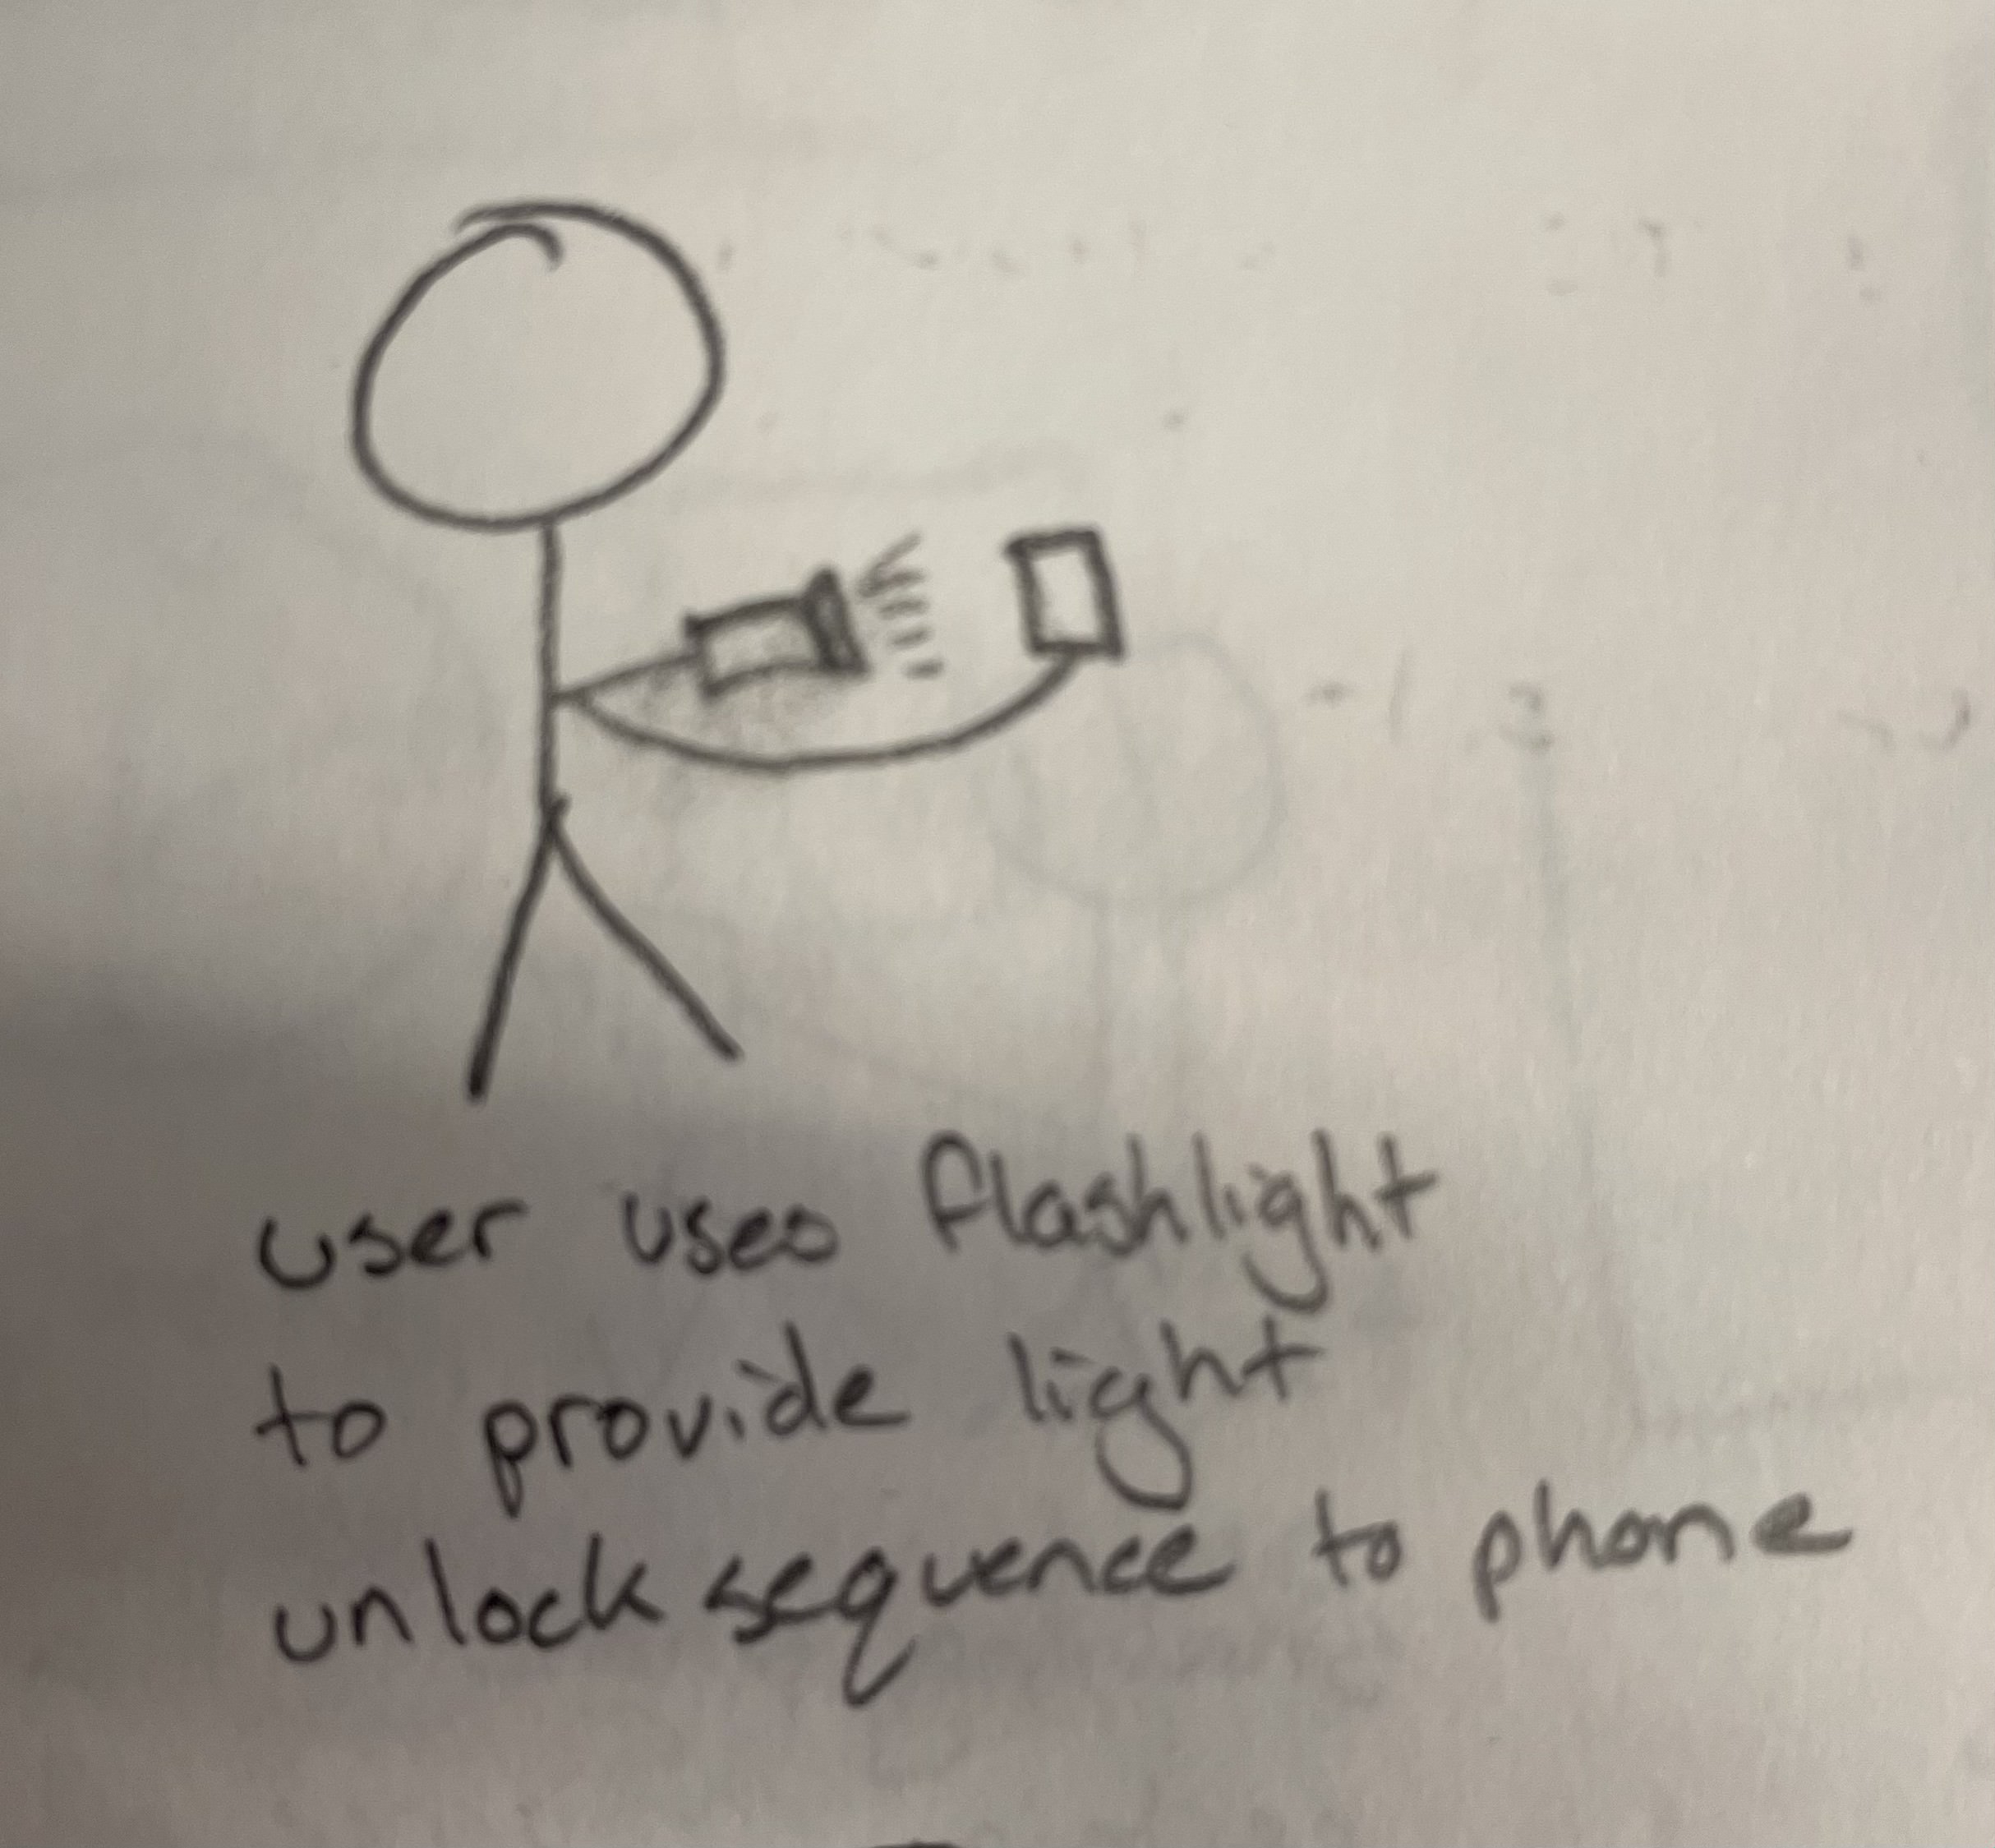 user uses flashlight
to provide light
unlock sequence to phone